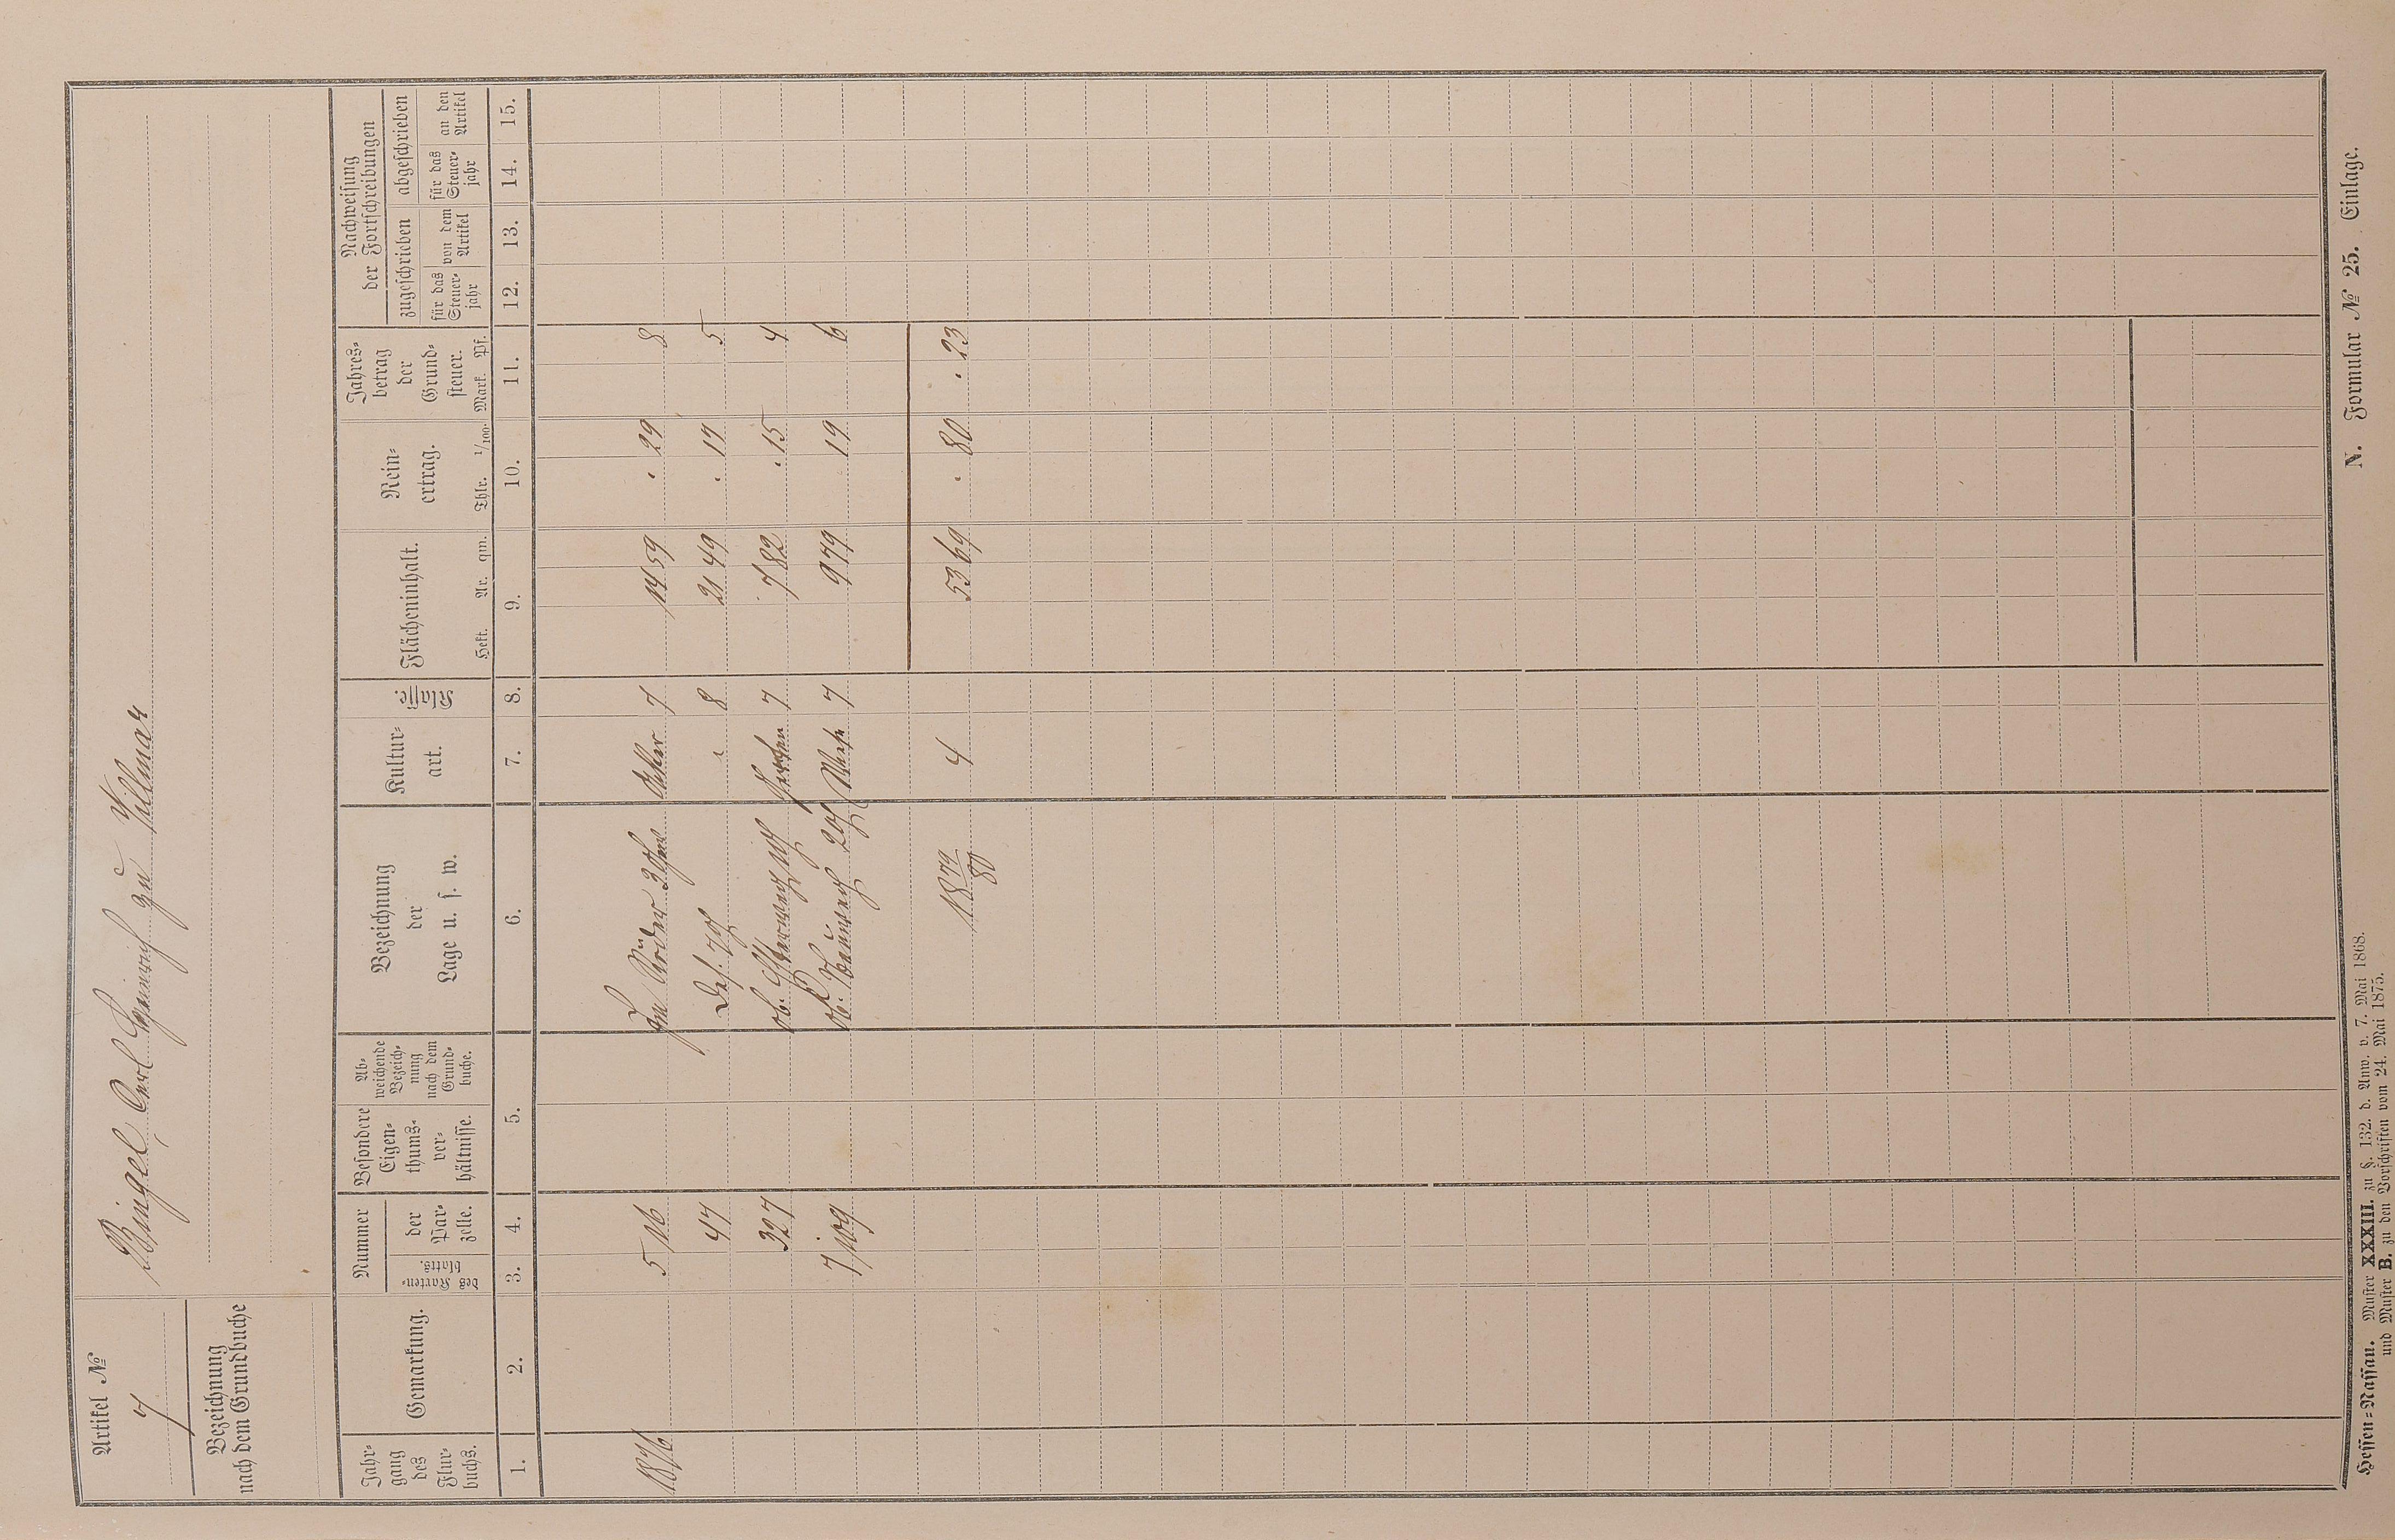 Artikel № 7
Bingel, Carl Heinrich zu Villmar
Bezeichnung
nach dem Grundbuche
Jahr-
gang
des
Flur-
buchs.
Gemarkung.
Nummer
des Karten-
blatts.
der
Par-
zelle.
Besondere
Eigen-
thums-
ver-
hältnisse.
Ab-
weichende
Bezeich-
nung
nach dem
Grund-
buche.
Bezeichnung
der
Lage u. s. w.
Kultur-
art.
Klasse.
Flächeninhalt.
Hekt. Ar. qm.
Rein-
ertrag.
Thlr. 1/100.
Jahres-
betrag
der
Grund-
steuer.
Mark. Pf.
Nachweisung
der Fortschreibungen
zugeschrieben
für das
Steuer-
jahr
von dem
Artikel
abgeschrieben
für das
Steuer-
jahr
an den
Artikel
1. 2. 3. 4. 5. 6. 7. 8. 9. 10. 11. 12. 13. 14. 15.
1876 5 16 Im Acker 7 14 59 . 29 8
47 Das. " 8 21 49 . 17 5
327 Ob. 7 7 82 . 15 4
7 109 Ob. Wiese 7 9 79 19 6
1879/80 4 53 69 . 80 . 23
Hessen-Nassau. Muster XXXIII. zu §. 132. d. Anw. v. 7. Mai 1868.
und Muster B. zu den Vorschriften vom 24. Mai 1875.
N. Formular № 25. Einlage.